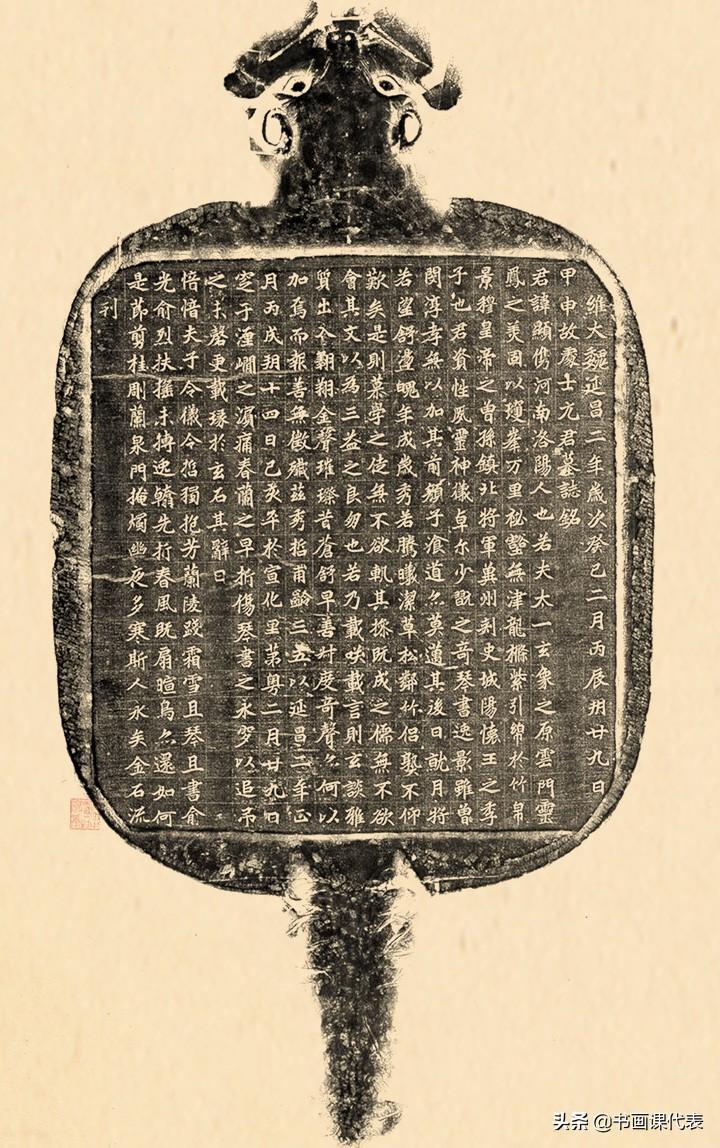 維大魏延昌二年歲次癸巳二月丙辰朔廿九日
甲申故處士元君墓誌銘
君諱顯儁河南洛陽人也若夫太一玄象之原雲門靈
鳳之美固以瓊峯万里秘壑無津龍㯹紫引綿於竹帛
景穆皇帝之曾孫鎮北將軍冀州刾史城陽懷王之季
子也君資性夙靈神儀卓尔少翫之奇琴書逸影雖曾
閔淳孝無以加其前顏子飡道亦莫邁其後日就月將
若望舒盪魄年成歲秀若騰曦潔草松鄰竹侶娶不仰
歎矣是則慕學之徒無不欲軌其操既成之儒無不欲
會其文以為三益之良朋也若乃載唉載言則玄談雅
質出入翱翔金聲璀璨昔蒼舒早善叶度奇聲亦何以
加焉而報善無徵殲茲秀哲甫齡三五以延昌二年正
月丙戌朔十四日己亥卒於宣化里第粵二月廿九日
窆于瀍澗之濱痛春蘭之早折傷琴書之永穸以追弔
之未罄更載琢於玄石其辭曰
愔愔夫子令儀令哲獨抱芳蘭陵踐霜雪且琴且書俞
光俞烈扶搖未摶逸翰先折春風既扇暄鳥亦還如何
是節剪桂彫蘭泉門掩燭幽夜多寒斯人永矣金石流
刊
头条 @书画课代表